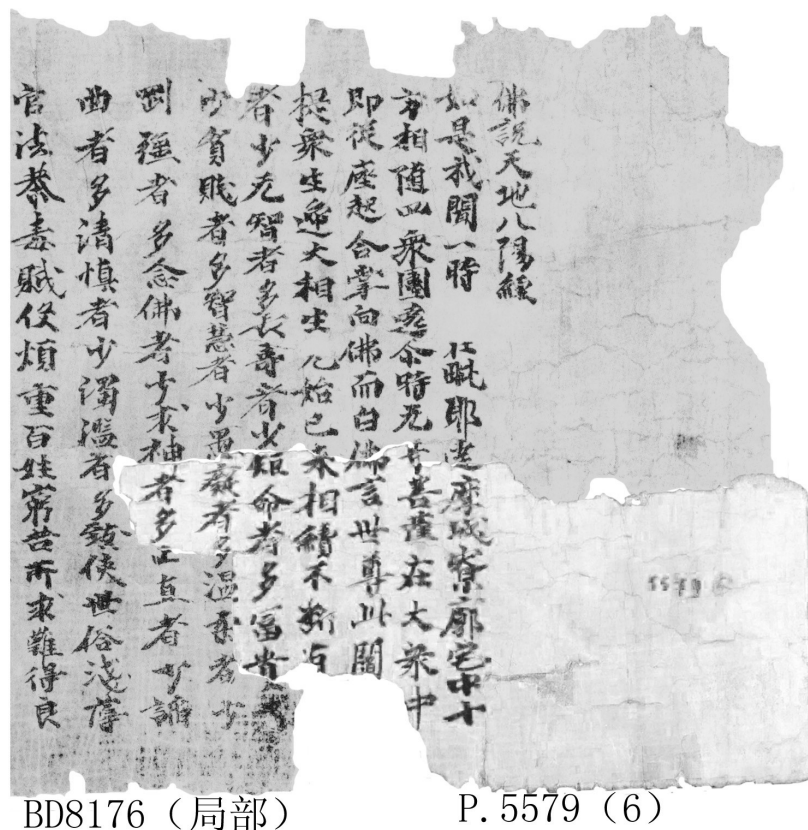 佛說天地八陽經
如是我聞一時　在毗耶達摩城寮廓宅中十
方相隨四衆圍遶尒時无㝵菩薩在大衆中
即從座起合掌向佛而白佛言世尊此閻
提衆生遞大相生无始已来相續不斷有
者少无智者多長壽者少短命者多冨貴
少貧賤者多智慧者少愚癡者多温柔者少
剛強者多念佛者少求神者多正直者少諂
曲者多清慎者少濁濫者多致使世俗淺薄
官法荼毒賦役煩重百姓窮苦所求難得良
5579
BD8176（局部）
P.5579（6）